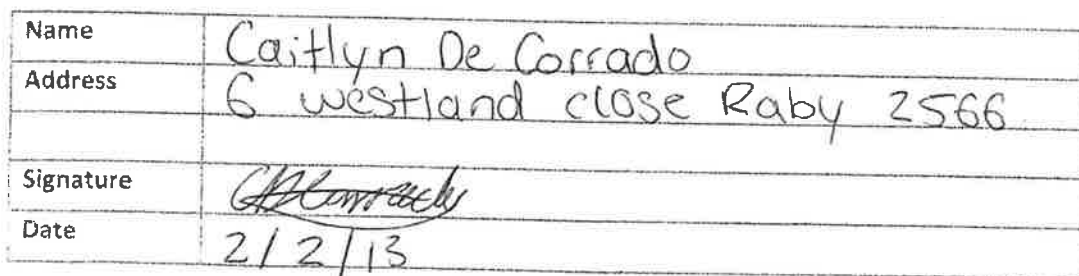 Name Caitlyn De Corrado
Address 6 westland close Raby 2566
Signature
Date 2/2/13